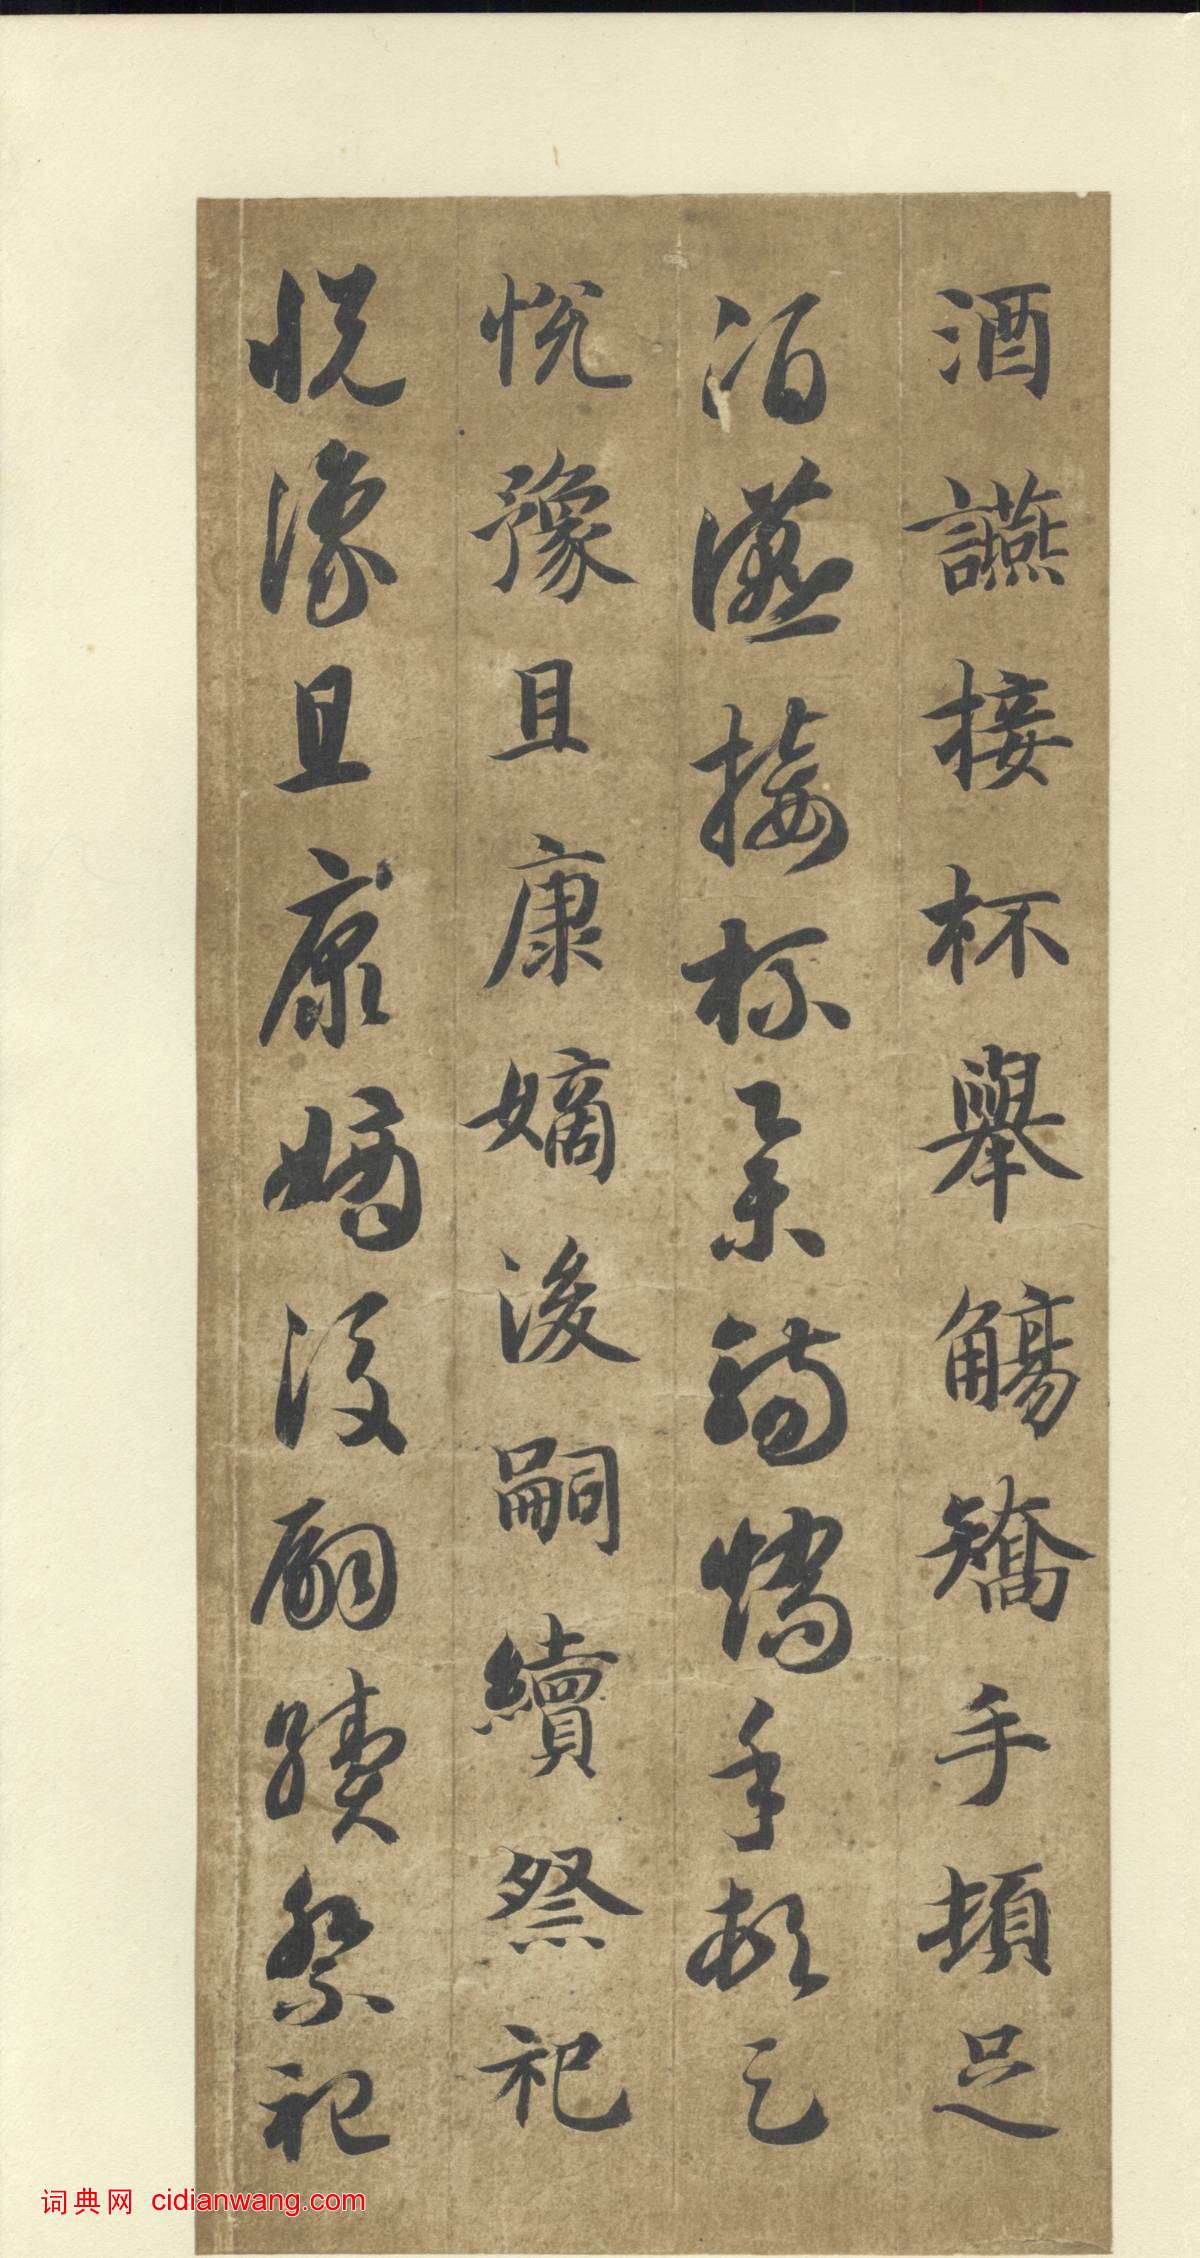 酒讌接杯舉觴矯手頓足
酒讌接杯舉觴矯手頓足
悅豫且康嫡後嗣續祭祀
悅豫且康嫡後嗣續祭祀
词典网 cidianwang.com